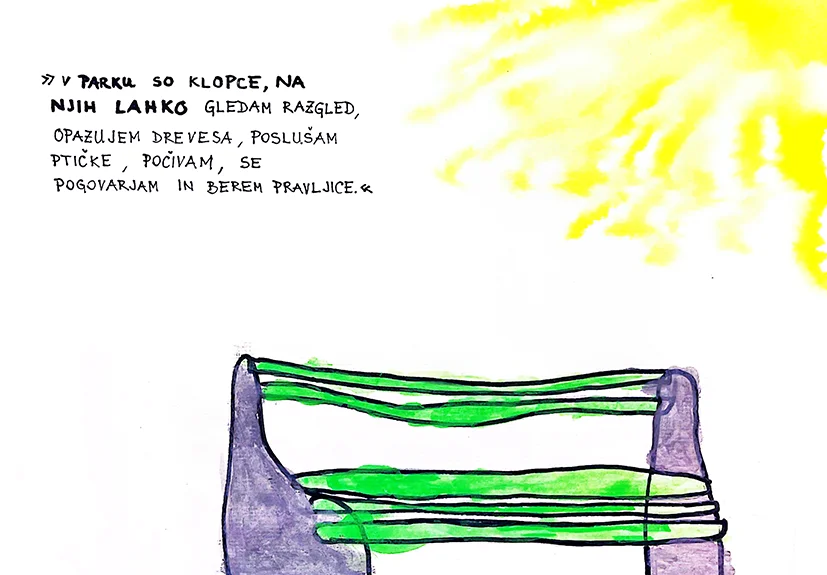 » V PARKU SO KLOPCE, NA
NJIH LAHKO GLEDAM RAZGLED,
OPAZUJEM DREVESA, POSLUŠAM
PTIČKE, POČIVAM, SE
POGOVARJAM IN BEREM PRAVLJICE.«